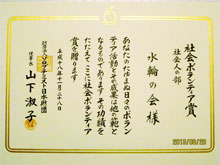 社会ボランティア賞
社会人の部
水輪の会様
あなたのたゆまぬ日々のボラン
ティア活動とその成果は他の範と
なるものであります その功績を
たたえてここに社会ボランティア
賞を贈ります
平成十八年十一月二十八日
財団法人ソロプチミスト日本財団
理事長 山下淑子
2013/08/23